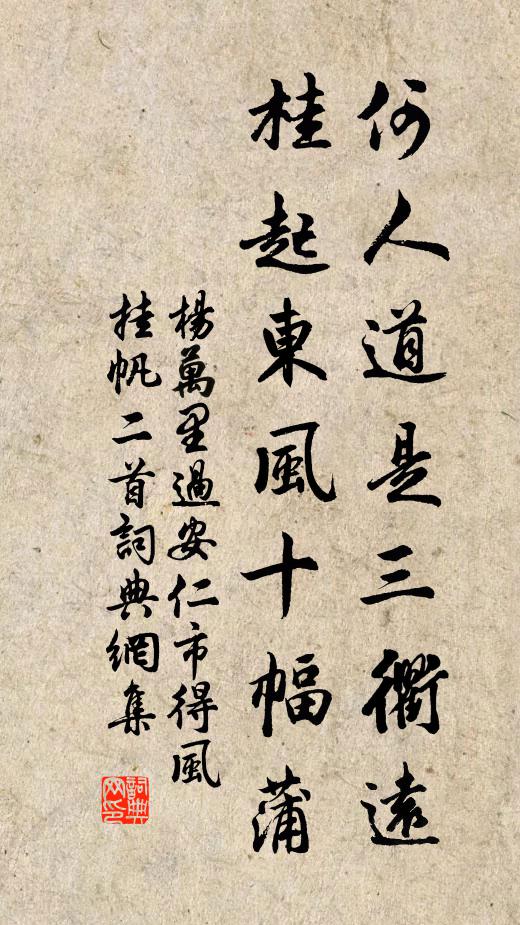 何人道是三衢遠
桂起東風十幅蒲
楊萬里過安仁市得風
挂帆二首詞典網集
詞典网印